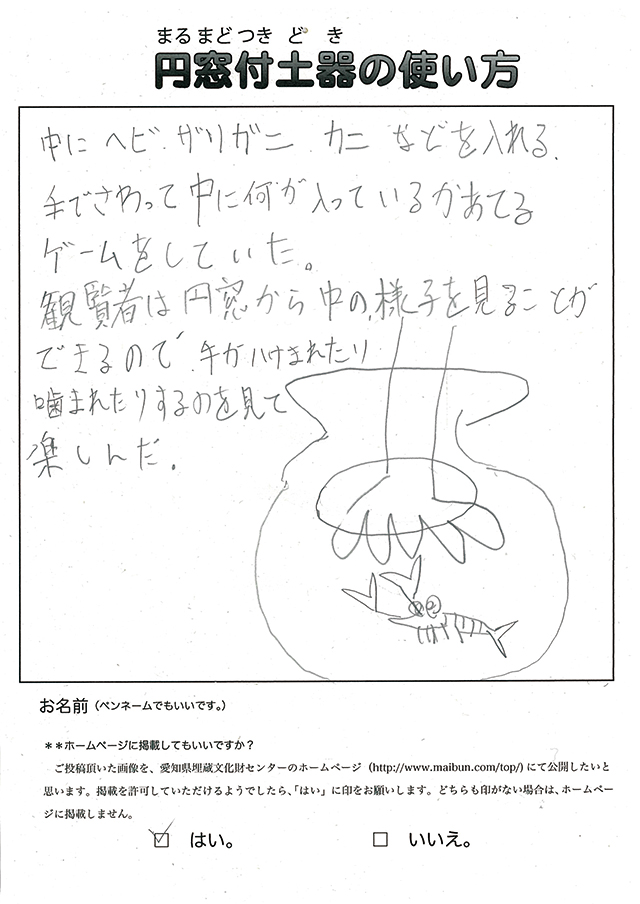 まるまどつきどき
円窓付土器の使い方
中に ヘビ、ザリガニ、カニ などを入れる、
手でさわって中に何が入っているかあてる
ゲームをしていた。
観覧者は円窓から中の様子を見ることが
できるので、手がはさまれたり
噛まれたりするのを見て
楽しんだ。
お名前（ペンネームでもいいです。）
＊＊ホームページに掲載してもいいですか？
ご投稿頂いた画像を、愛知県埋蔵文化財センターのホームページ（http://www.maibun.com/top/）にて公開したいと
思います。掲載を許可していただけるようでしたら、「はい」に印をお願いします。どちらも印がない場合は、ホームペー
ジに掲載しません。
はい。 いいえ。